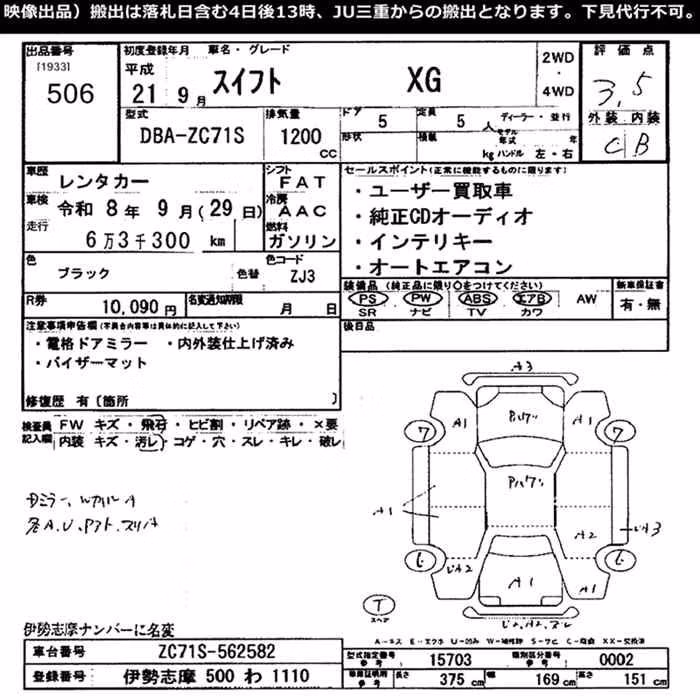 映像出品）搬出は落札日含む4日後13時、JU三重からの搬出となります。下見代行不可。
出品番号
[1933]
506
初度登録年月 車名・グレード
平成
21 9月
スイフト XG
2WD
・
4WD
評価点
3.5
外装 内装
C B
型式
DBA-ZC71S
排気量
1200
CC
ドア 5
定員 5 人
ディーラー・並行
形状
積載 kg
モデル年式 年
ハンドル 左・右
車歴 レンタカー
シフト FAT
車検 令和 8年 9月(29日)
冷房 AAC
走行 6万3千300 km
燃料 ガソリン
色 ブラック 色替
色コード ZJ3
セールスポイント(正常に機能するものに限ります)
・ユーザー買取車
・純正CDオーディオ
・インテリキー
・オートエアコン
装備品(純正品に限り○をつけてください)
PS・PW・ABS・エアB・AW
SR ナビ TV カワ
新車保証書
有・無
R券 10,090 円
名変通知期限 月 日
後日品
注意事項申告欄(不具合内容等は具体的に記入して下さい)
・電格ドアミラー ・内外装仕上げ済み
・バイザーマット
修復歴 有〔箇所 〕
検査員記入欄
FW キズ・飛石・ヒビ割・リペア跡・×要
内装 キズ・汚レ・コゲ・穴・スレ・キレ・破レ
A3
A1 A1
7 7
A1
A2
A3
A2
6 6
A1
T
スペア
伊勢志摩ナンバーに名変
車台番号 ZC71S-562582
登録番号 伊勢志摩 500 わ 1110
型式指定番号 参考 15703
類別区分番号 参考 0002
参考 長さ 375 cm 幅 169 cm 高さ 151 cm